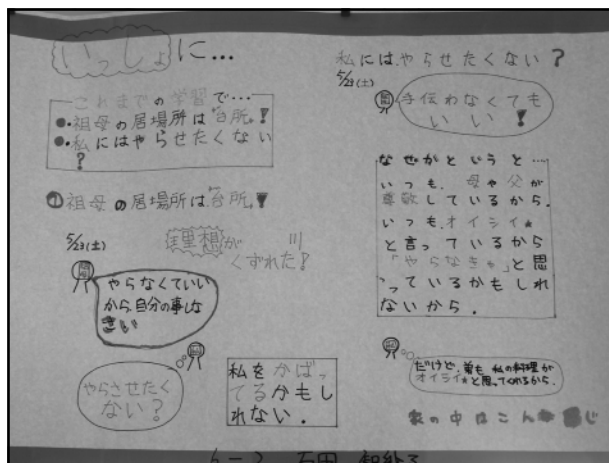 いっしょに…
これまでの学習で…
●・祖母の居場所は「台所」!
●・私にはやらせたくない
?
①祖母の居場所は「台所」!
5/23(土)
理想が
くずれた!
やらなくていい
から、自分の事しな
さい
やらさせたく
ない?
私をかばっ
てるかもし
れない.
私には、やらせたくない?
5/23(土)
手伝わなくても
いい!
なぜかというと…
いつも、母や父が
尊敬しているから.
いつも、オイシイ★
と言っているから
「やらなきゃ」と思
っているかもしれ
ないから.
だけど、弟も私の料理が
オイシイ★と思ってくれるから.
家の中はこん
じ
6-2 石田